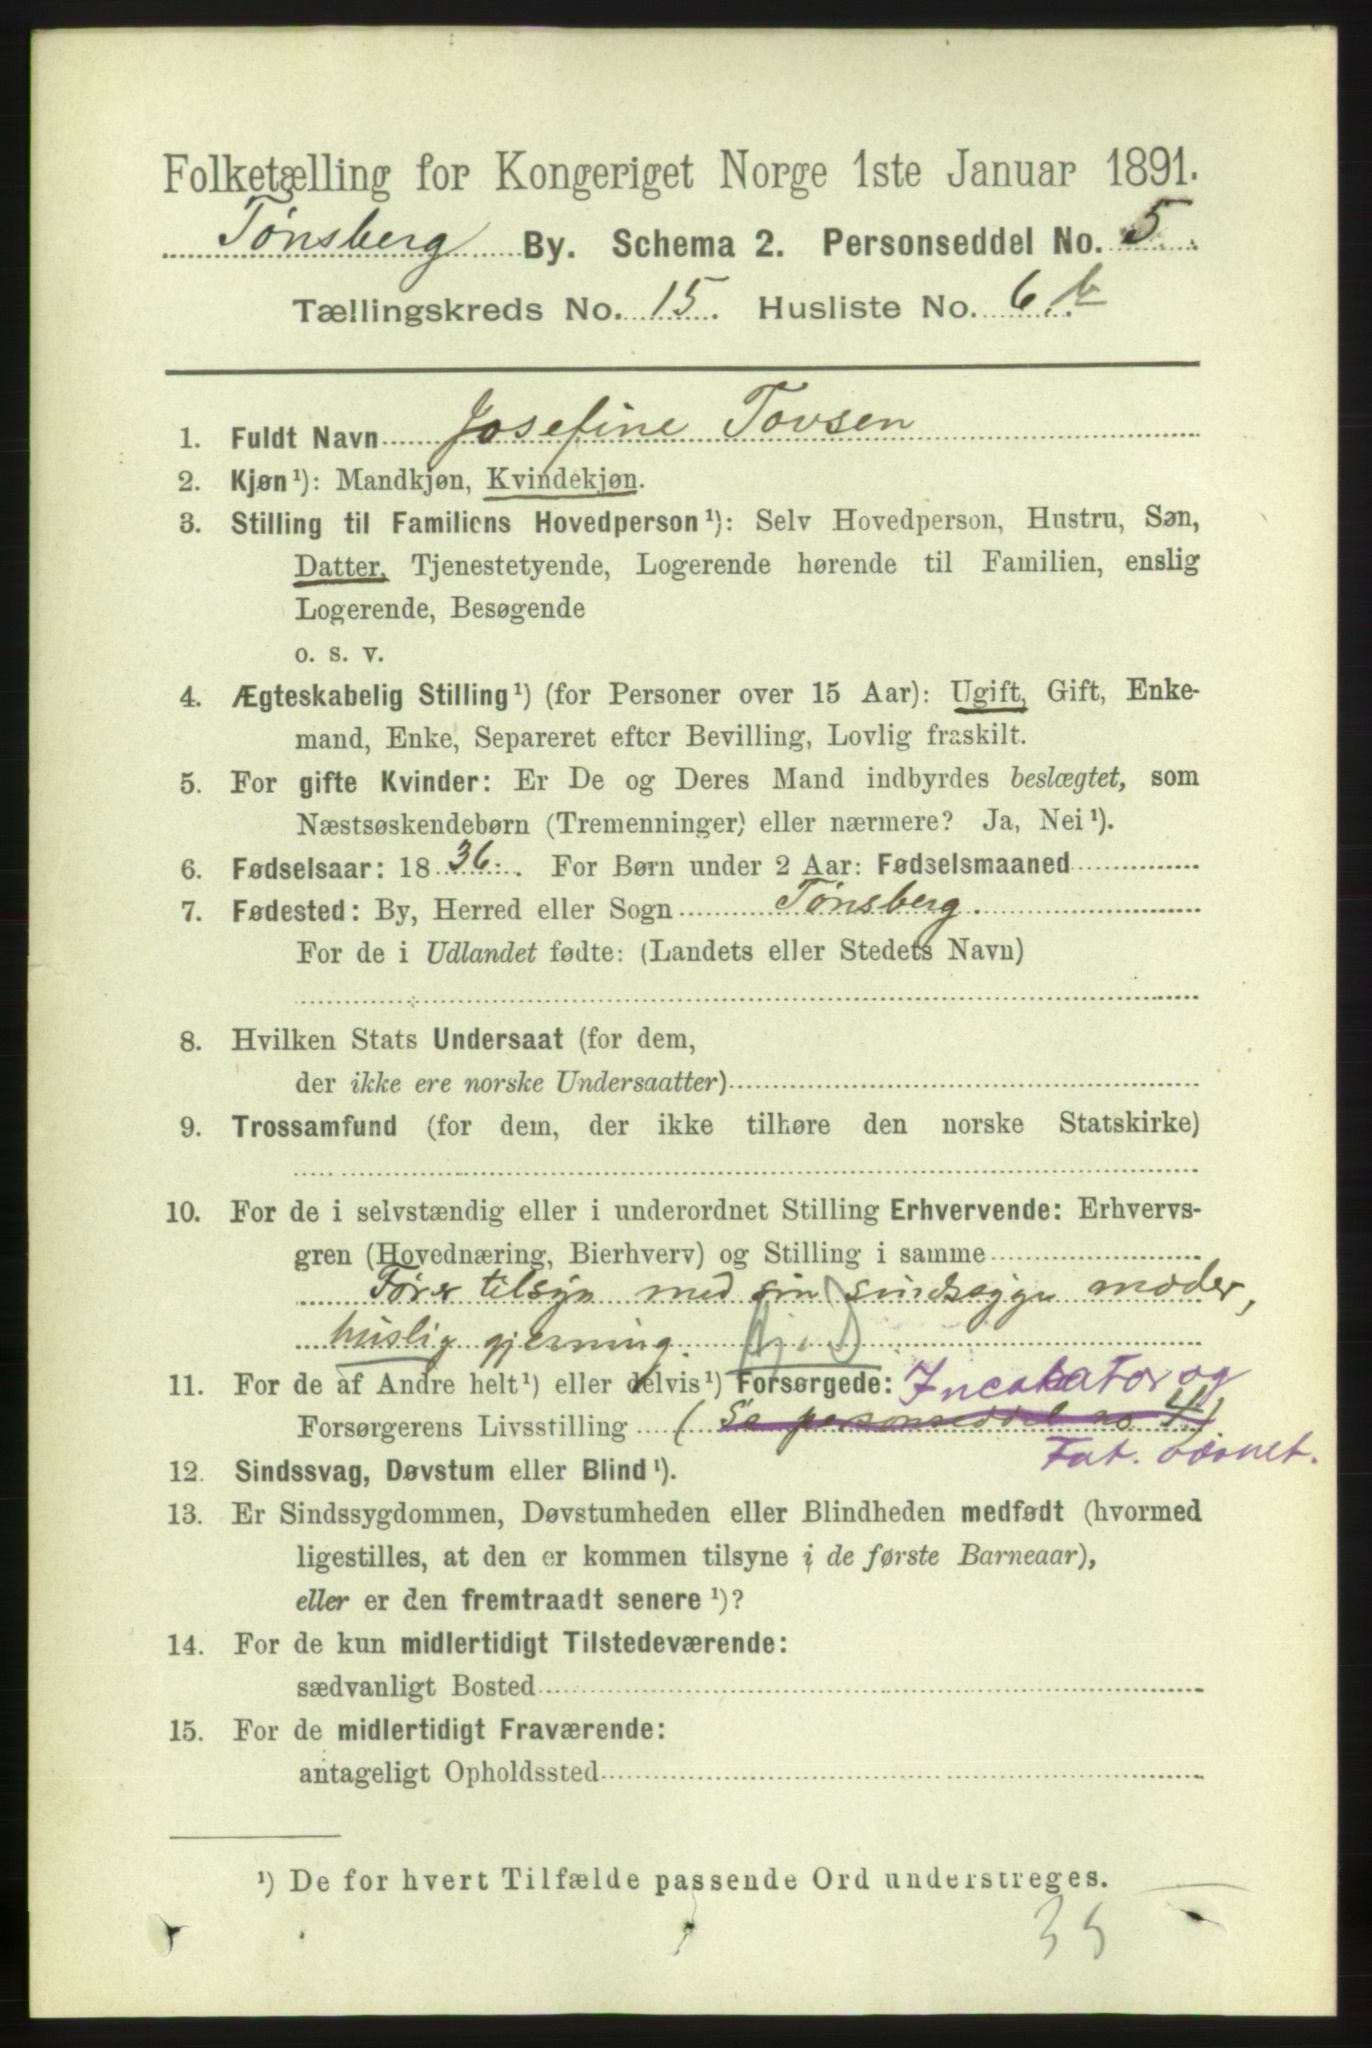 Folketælling for Kongeriget Norge 1ste Januar 1891.
Tønsberg By. Schema 2. Personseddel No. 5.
Tællingskreds No. 15. Husliste No. 6 b
1. Fuldt Navn Josefine Tovsen
2. Kjøn¹): Mandkjøn, Kvindekjøn.
3. Stilling til Familiens Hovedperson¹): Selv Hovedperson, Hustru, Søn,
Datter, Tjenestetyende, Logerende hørende til Familien, enslig
Logerende, Besøgende
o. s. v.
4. Ægteskabelig Stilling¹) (for Personer over 15 Aar): Ugift, Gift, Enke-
mand, Enke, Separeret efter Bevilling, Lovlig fraskilt.
5. For gifte Kvinder: Er De og Deres Mand indbyrdes beslægtet, som
Næstsøskendebørn (Tremenninger) eller nærmere? Ja, Nei¹).
6. Fødselsaar: 1836. For Børn under 2 Aar: Fødselsmaaned
7. Fødested: By, Herred eller Sogn Tønsberg.
For de i Udlandet fødte: (Landets eller Stedets Navn)
8. Hvilken Stats Undersaat (for dem,
der ikke ere norske Undersaatter)
9. Trossamfund (for dem, der ikke tilhøre den norske Statskirke)
10. For de i selvstændig eller i underordnet Stilling Erhvervende: Erhvervs-
gren (Hovednæring, Bierhverv) og Stilling i samme
Fører tilsyn med sin sindssyge moder,
huslig gjerning.
11. For de af Andre helt¹) eller delvis¹) Forsørgede: Incakator og
Forsørgerens Livsstilling (Se personseddel no. 4)
Fat. væsnet.
12. Sindssvag, Døvstum eller Blind¹).
13. Er Sindssygdommen, Døvstumheden eller Blindheden medfødt (hvormed
ligestilles, at den er kommen tilsyne i de første Barneaar),
eller er den fremtraadt senere¹)?
14. For de kun midlertidigt Tilstedeværende:
sædvanligt Bosted
15. For de midlertidigt Fraværende:
antageligt Opholdssted
¹) De for hvert Tilfælde passende Ord understreges.
35